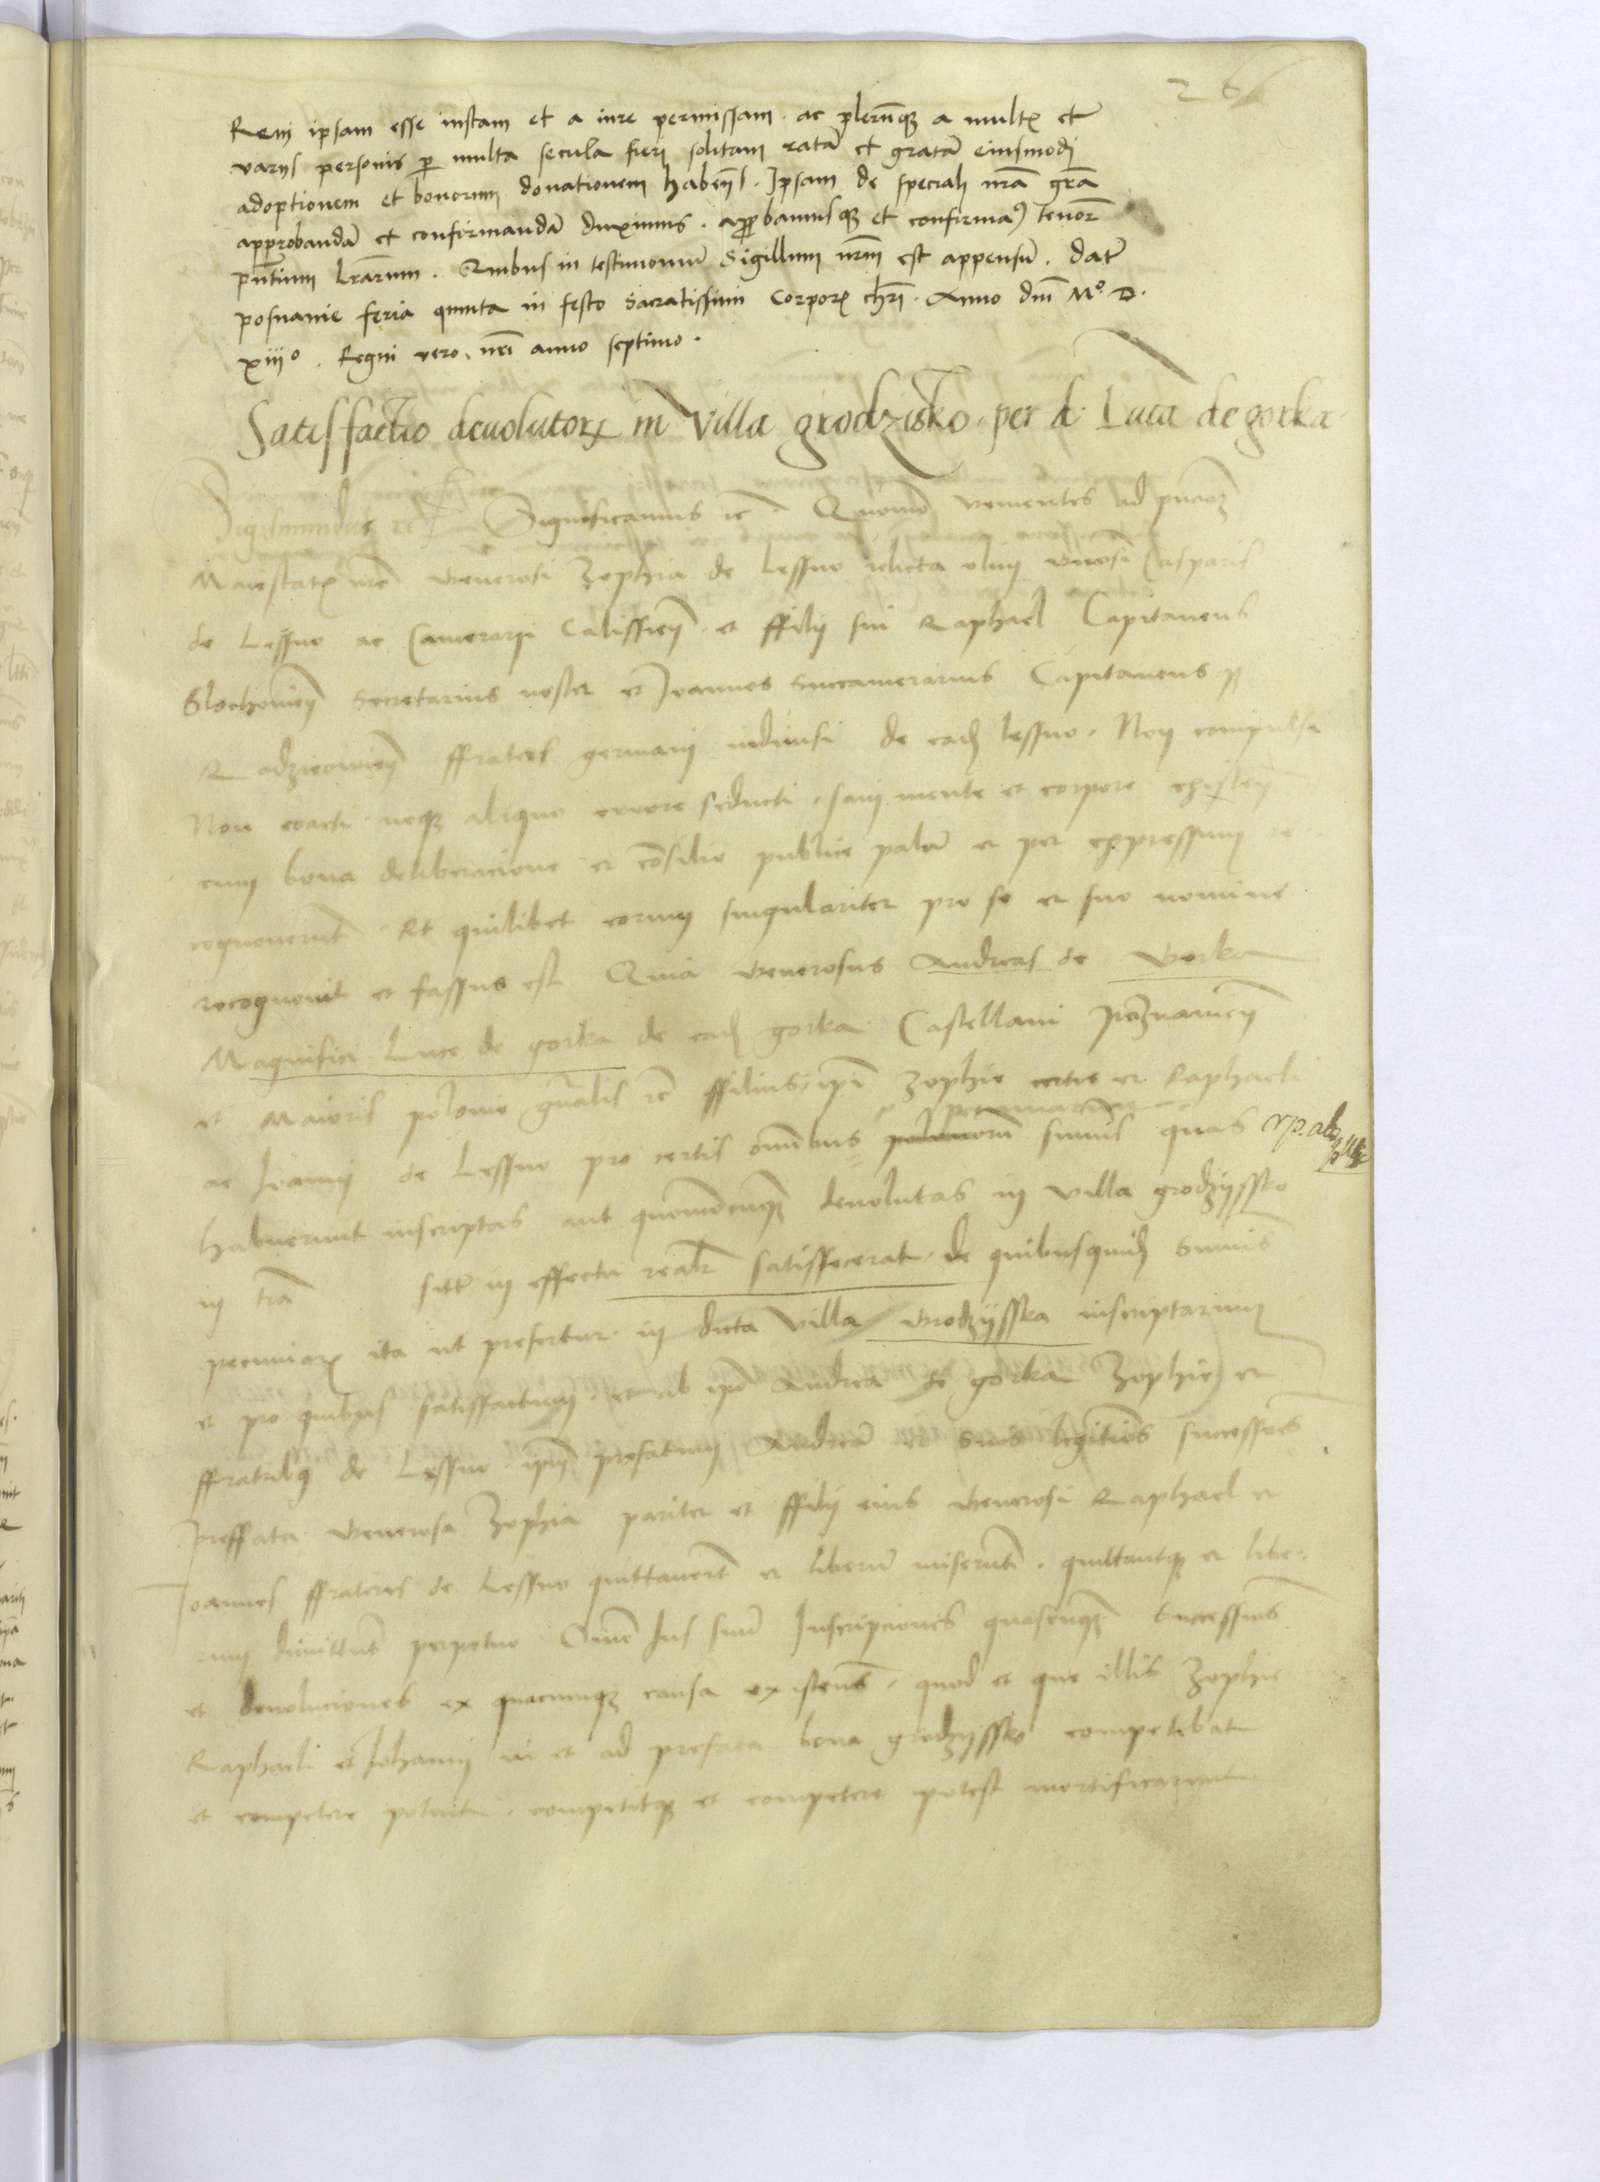 26
Rem ipsam esse iustam et a iure permissam. ac plerūq3 a multꝭ et
varijs personis ꝑ multa secula fieri solitam ratā et gratā eiusmodj
adoptionem et bonorum donationem habeñ. Ipsam de speciali nrā grā
approbandā et confirmandā duximus. approbamusq3 et confirmaꝰ tenorē
pñtium lrārum. Quibus in testimoniū Sigillum nrm̄ est appensū. Datū
posnanie feria quinta in festo sacratissimi Corporꝭ chrī. Anno dm̄ Mº. D.
xiijº. Regni vero nrī anno septimo.
Satisfactio deuolutorꝝ in villa grodzisko per d. Lucā de gorka
Sigismundus rc Significamus rc. Quomō venientes ad pñciam
Maiestatꝭ nrē Generosi Zophia de Lessno relicta olim Gñosi Casparis
de Lessno ac Camerarij Calissieñ. et ffilij sui Raphael Capitaneus
Slochowieñ Secretarius noster et Joannes Succamerarius Capitaneus qꝫ
Radzieowieñ ffratres germani indiuisi de eadē lessno. Non compulsi
Non coacti neqꝫ aliquo errore seducti. sani mente et corpore existeñ
cum bona deliberacione et cōsilio publice palā et per expressum re
cognouerūt Et quilibet eorum singulariter pro se et suo nomine
recognouit et fassus est Quia Generosus Andreas de Gorka
Magnifici Luce de gorka de eadē gorka Castellani Poznanieñ
et Maioris polonie gñalis rc ffilius ipī Zophie et Raphaeli
ac Joanni de Lessno pro certis omībus summis quas
habuerunt inscriptas aut quomōcūqꝫ deuolutas in villa grodzyssko
in trā sitā in effectu realr satisfecerat. de quibusquidē Sumis
pecuniarꝫ ita ut prefertur in dicta villa Grodzijsska inscriptarum
et pro quibus satisfactum. et ab ipō Andrea de gorka Zophie et
ffratribꝰ de Lessno ipm prefatum Andreā et suos legitimos successores
Preffata Generosa Zophia pariter et ffilij eius Generosi Raphael et
Joannes ffratres de Lessno quittauerūt et liberū miserūt. quittantqꝫ et libe-
rum dimittūt perpetuo Omē Jus suū Inscripciones quascūqꝫ Successiōes
et deuoluciones ex quacumqꝫ causa existeñs. quod et que illis Zophie
Raphaeli et Johanni in et ad prefata bona grodzyssko competebat
et competere poterit. competitqꝫ et competere potest mortificarunt